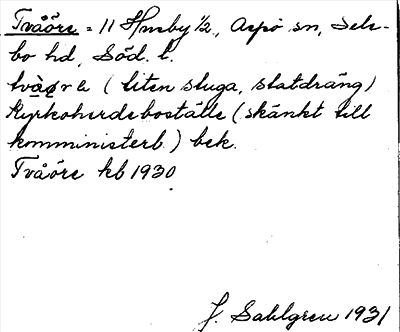 Tvåöre = 11 Husby 1/2, Aspö sn, Sele-
bo hd, Söd. l.
tvåørə (liten stuga, statdräng)
Kyrkoherdeboställe (skänkt till
komministerb.) bek.
Tvåöre kb 1930
J. Sahlgren 1931